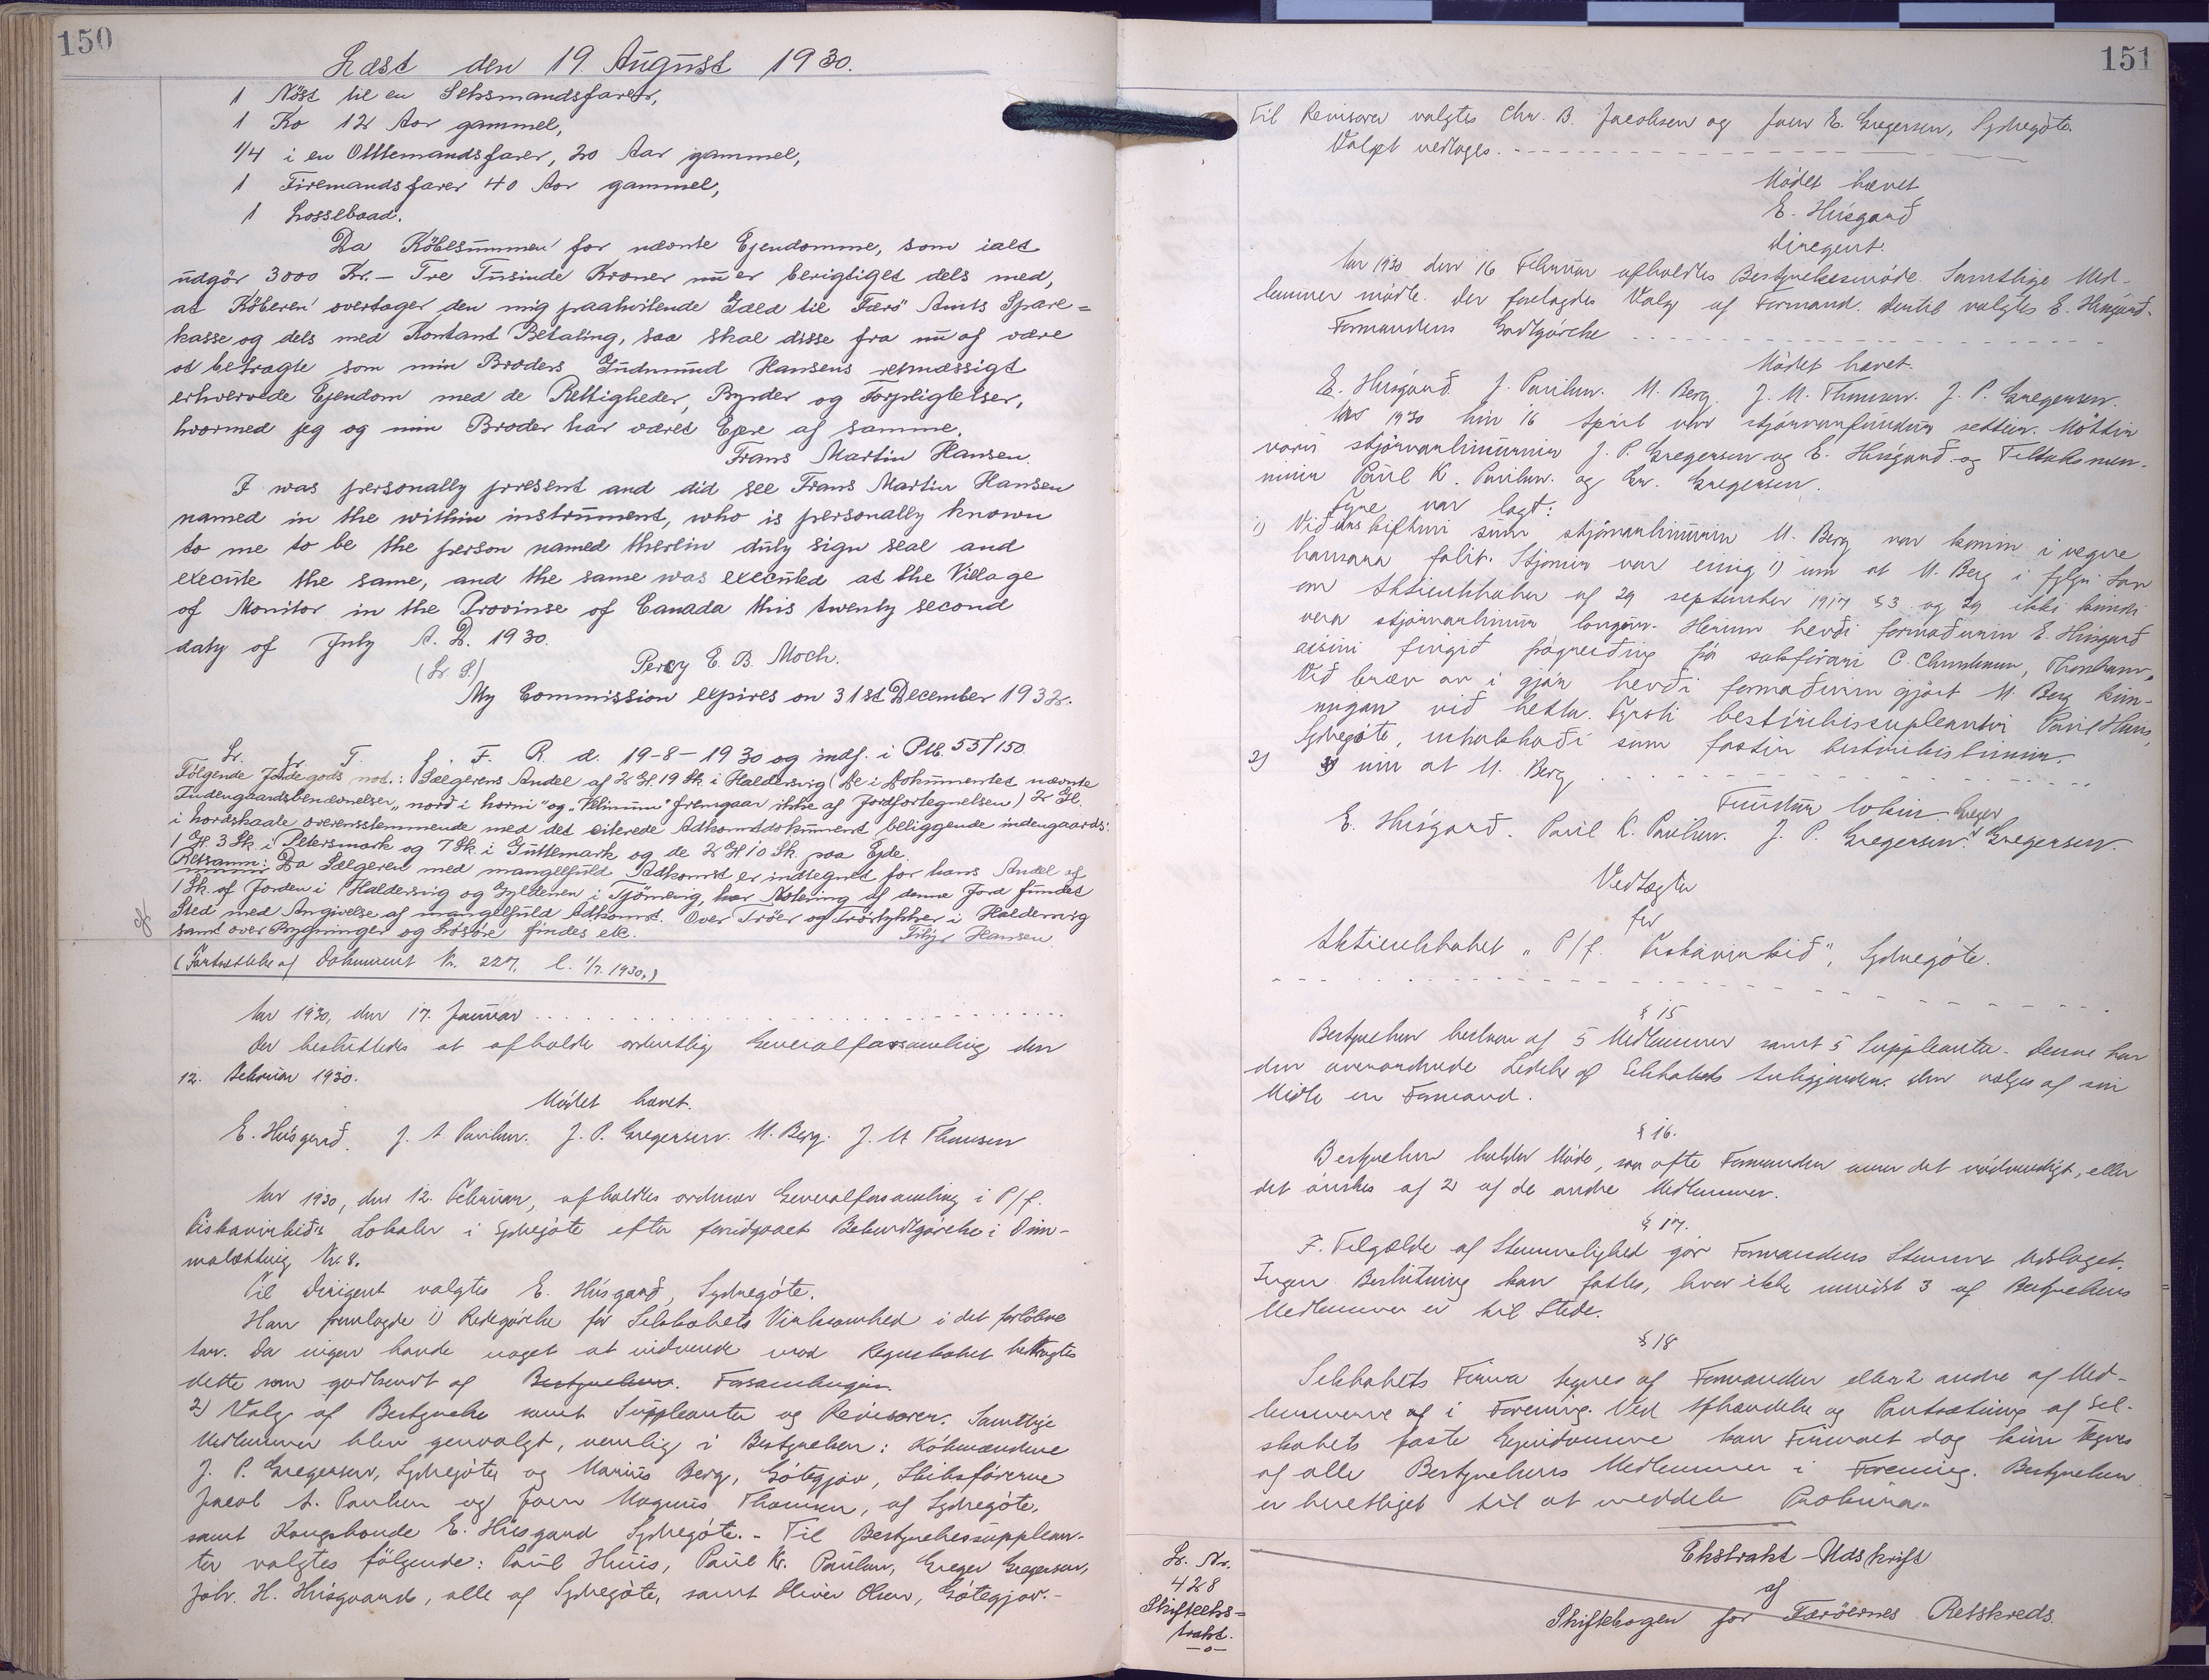 150
Læst den 19. August 1930.
1 Nöst til en Seksmandsfarer,
1 Ko 12 Aar gammel,
1/4 i en Ottemandsfarer, 20 Aar gammel,
1 Firemandsfarer 40 Aar gammel,
1 Lossebaad.
Da Köbesummen for nævnte Ejendomme, som ialt
udgör 3000 Kr. - Tre Tusinde Kroner nu er berigtiget dels med,
at Köberen overtager den mig paahvilende Gæld til Færö Amts Spare=
kasse og dels med Kontant Betaling, saa skal disse fra nu af være
at betragte som min Broders Gudmund Hansens retmæssigt
erhvervede Ejendom med de Rettigheder, Byrder og Forpligtelser,
hvormed jeg og min Broder har været Ejere af samme.
Frans Martin Hansen.
I was personally present and did see Frans Martin Hansen
named in the within instrument, who is personally known
to me to be the person named therlin duly sign seal and
execute the same, and the same was executed at the Village
of Monitor in the Provinse of Canada this twenty second
daty of July A. D. 1930.
(L. S.) Percy E. B. Moch.
My Commission expires on 31st December 1932.
L. f. T. f. F. R. d. 19-8-1930 og indf. i Ptb. 55/150
Fölgende Jordegods not.: Sælgerens Andel af 2 Gl. 19 Sk. i Haldersvig (De i Dokumentet nævnte
Indengaardsbenævnelser „nord i horni" og „Klinum" fremgaar ikke af Jordfortegnelsen) 2 Gl.
i hordskaale overensstemmende med det citerede Adkomstdokument beliggende indengaards:
1 Gl. 3 Sk. i Petersmark og 7 Sk. i Guttemark og de 2 Gl. 10 Sk. paa Ejde.
Retsanm: Da Sælgeren med mangelfuld Adkomst er indtegnet for hans Andel af
1 Sk. af Jorden i Haldersvig og Gyldenen i Tjörnevig, har Notering af denne Jord fundet
Sted med Angivelse af mangelfuld Adkomst. Over Tröer og Tröstykker i Haldersvig
samt over Bygninger og Lösöre findes etc. Hansen.
(Fortsættelse af Dokument Nr. 227, l. 1/7. 1930.)
Aar 1930, den 17. Januar
Der besluttedes at afholde ordentlig Generalforsamling den
12. Februar 1930.
Mödet hævet.
E. Húsgarð. J. A Paulsen. J. P. Gregersen. M. Berg. J. M Thomsen
Aar 1930, den 12. Februar, afholdtes ordinær Generalforsamling i P/f.
Fiskavirkið's Lokaler i Sydregöte efter forudgaaet Bekendtgörelse i Dim-
malætting Nr. 8.
Til Dirigent valgtes E. Húsgarð, Sydregöte.
Han fremlagde 1) Redegörelse for Selskabets Virksomhed i det forlöbne
Aar. Da ingen havde noget at indvende mod Regnskabet betragtes
dette som godkendt af Bestyrelsen. Forsamlingen.
2) Valg af Bestyrelse samt Suppleanter og Revisorer. Samtlige
Medlemmer blev genvalgt, nemlig i Bestyrelsen: Köbmændene
J. P. Gregersen, Sydregöte og Marius Berg, Götegjov, Skibsförerne
Jacob A. Paulsen og Joen Magnus Thomsen, af Sydregöte,
samt Kongsbonde E. Húsgaard Sydregöte. - Til Bestyrelsessupplean-
ter valgtes fölgende: Paul Huus, Paul Kr. Paulsen, Greger Gregersen,
Joh. H. Húsgaard, alle af Sydregöte, samt Oliver Olsen, Götegjov. -
151
Til Revisorer valgtes Chr. B. Jacobsen og Joen E. Gregersen, Sydregöte.
Valget vedtoges.
Mödet hævet
E. Húsgarð
Dirigent.
Aar 1930 den 16 Februar afholdtes Bestyrelsesmöde. Samtlige Med-
lemmer mödte. Der foretagdes Valg af Formand. Dertil valgtes E. Húsgarð.
Formandens Godtgörelse
Mödet hævet.
E. Húsgarð. J. Paulsen. M. Berg. J. M. Thomsen. J. P. Gregersen.
Aar 1930 hin 16 April var stjórnarfundur settur. Möttir
voru stjórnarlimirnir J. P. Gregersen og E. Húsgarð og Tiltaksmen-
ninir Paul K. Paulsen. og Gr. Gregersen.
Fyre var lagt:
1) Við tað skiftini sum stjórnarlimurin M. Berg var komin i vegna
hansara falit. Stjórnin var einig i um at M. Berg i fylgi Lov
om Aktieselskaber af 29 september 1917 § 3 og 29 ikki kundi
vera stjórnarlimur longur. Herum hevði formaðurin E. Húsgarð
fingið frágreiðing frá sakförara C. Christiansen, Thorshavn.
Við bræv av i gjár hevði formaðurin gjört M. Berg kun-
nugan við hetta. Fyrsti bestirilsissupleantur Paul Huus,
Sydregöte, sum fastur bestirilsislimur.
2) um at M. Berg
Fundur lokin.
E. Húsgarð. Paul K. Paulsen. J. P. Gregersen. Greger Gregersen.
Vedtægter
for
Aktieselskabet „P/f. Fiskavirkið", Sydregöte.
§ 15
Bestyrelsen bestaar af 5 Medlemmer samt 5 Suppleanter. Denne har
den overordnede Ledelse af Selskabets Anliggender. Den vælger af sin
Midte en Formand.
§ 16.
Bestyrelsen holder Möde, saa ofte Formanden anser det nödvendigt, eller
det önskes af 2 af de andre Medlemmer.
§ 17.
I Tilfælde af Stemmelighed gör Formandens Stemme Udslaget.
Ingen Beslutning kan fattes, hvor ikke mindst 3 af Bestyrelsens
Medlemmer er til Stede.
§ 18
Selskabets Firma tegnes af Formanden eller 2 andre af Med-
lemmerne af i Forening. Ved Afhændelse og Pantsætning af Sel-
skabets faste Ejendomme kan Firmaet dog kun tegnes
af alle Bestyrelsens Medlemmer i Forening. Bestyrelsen
er berettiget til at meddele Prokura.
L. Nr.
428
Skifteeks=
trakt.
Ekstrakt-Udskrift
af
Skiftebogen for Færöernes Retskreds.